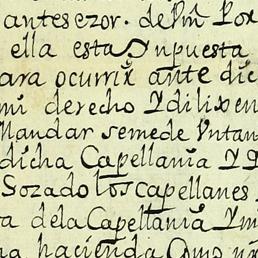 antesezor. de
ella esta puesta
ara ocurrir ante dic
mi derecho Y dilixen
Mandar semede Vntan
dicha Capellania Y
Sozado los capellanes
ta dela Capellania Ymi
na hacienda